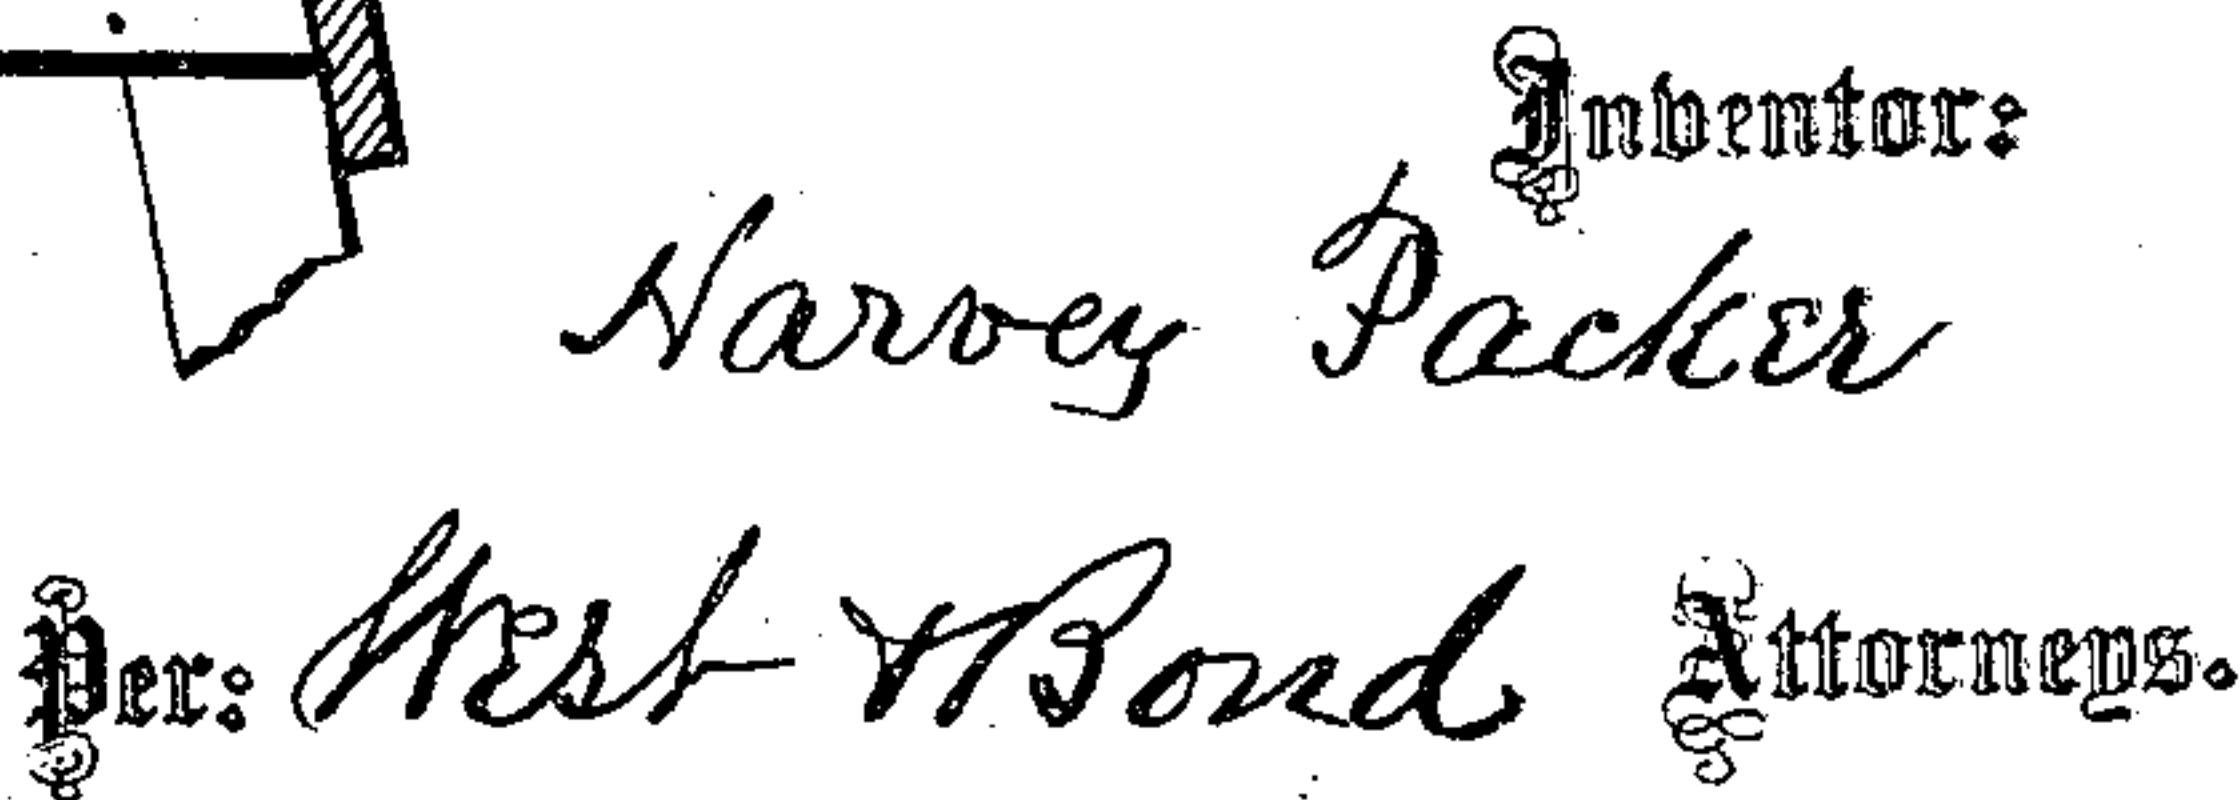 Inventor:
Harvey Packer
Per: West & Bond Attorneys.